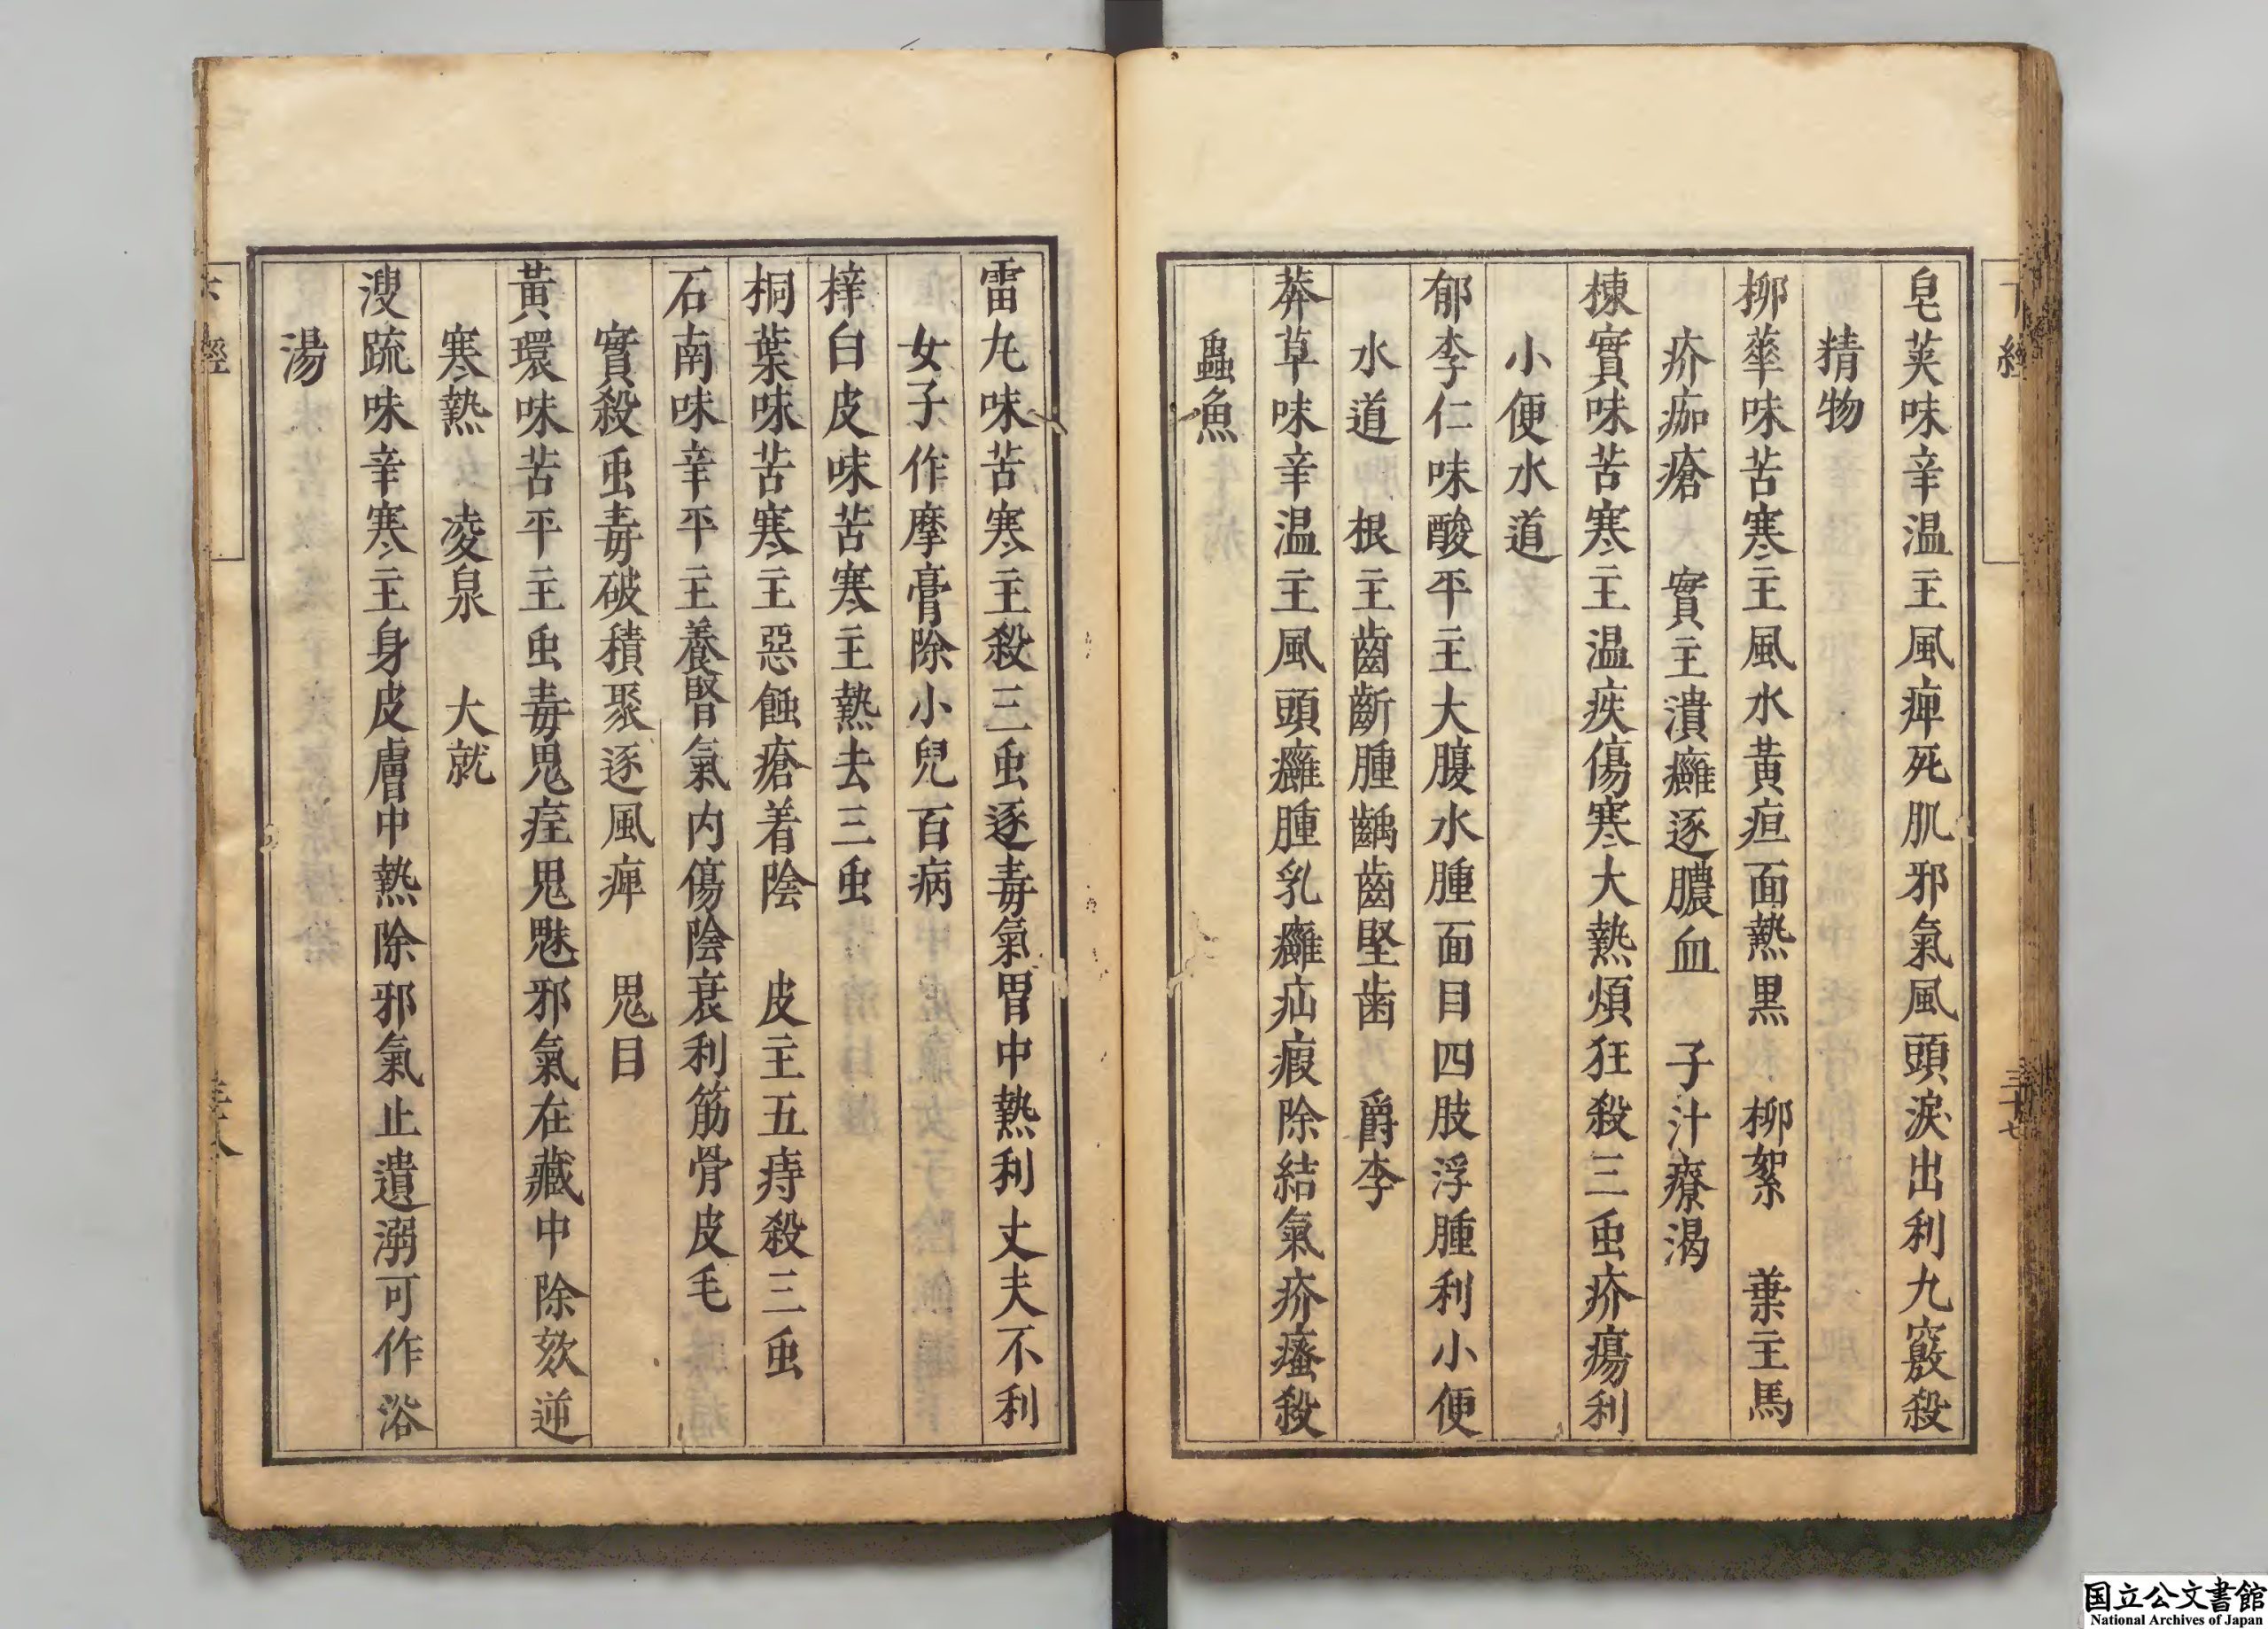 下經
三十七
皂莢味辛温主風痺死肌邪氣風頭淚出利九竅殺
精物
柳華味苦寒主風水黃疸面熱黒　柳絮　葉主馬
疥痂瘡　實主潰癰逐膿血　子汁療渴
楝實味苦寒主温疾傷寒大熱煩狂殺三虫疥瘍利
小便水道
郁李仁味酸平主大腹水腫面目四肢浮腫利小便
水道　根主齒齗腫齲齒堅歯　爵李
莽草味辛温主風頭癰腫乳癰疝瘕除結氣疥瘙殺
蟲魚
雷丸味苦寒主殺三虫逐毒氣胃中熱利丈夫不利
女子作摩膏除小兒百病
梓白皮味苦寒主熱去三虫
桐葉味苦寒主惡蝕瘡着陰　皮主五痔殺三虫
石南味辛平主養腎氣内傷陰衰利筋骨皮毛
實殺虫毒破積聚逐風痺　鬼目
黃環味苦平主虫毒鬼疰鬼魅邪氣在藏中除欬逆
寒熱　凌泉　大就
溲疏味辛寒主身皮膚中熱除邪氣止遺溺可作浴
湯
經
国立公文書館
National Archives of Japan